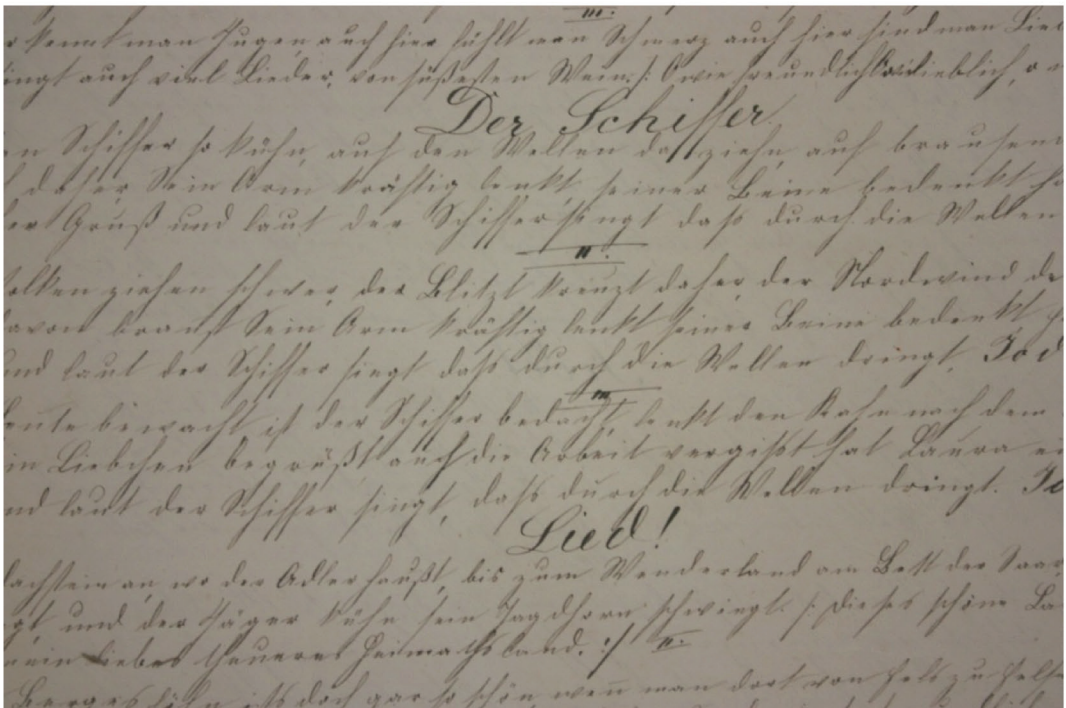 III.
kennt man Jugend auch hier fühlt man Schmerz auch hier sind man Lie
ingt auch viel Lieder, von süßesten Wein. /: O wie freundlich wie lieblich, o
Der Schiffer
n Schiffer so kühn, auf den Wellen da ziehn, auf brausen
daher Sein Arm kräftig lenkt, seiner Beine bedenkt,
er Gruß und laut der Schiffer singt daß durch die Wellen
II.
olken ziehen schwer, der Blitz kreuzt daher der Nordwind de
davon braust Sein Arm kräftig lenkt seiner Beine bedenkt
und laut der Schiffer singt daß durch die Wellen dringt. Jod
III.
eute bewacht ist der Schiffer bedacht, lenkt den Kahn nach dem
in Liebchen begrüßt auch die Arbeit vergißt hat Laura ei
nd laut der Schiffer singt, daß durch die Wellen dringt. Jo
Lied!
dachstein an, wo der Adler haußt, bis zum Wenderland am Bett der Saar
gt, und der Jäger kühn sein Jagdhorn schwingt. /: Dieses schöne La
mein liebes theueres Heimathsland. :/ II.
Berges ists doch gar so schön wen̄ man dort von Fels zu Felse